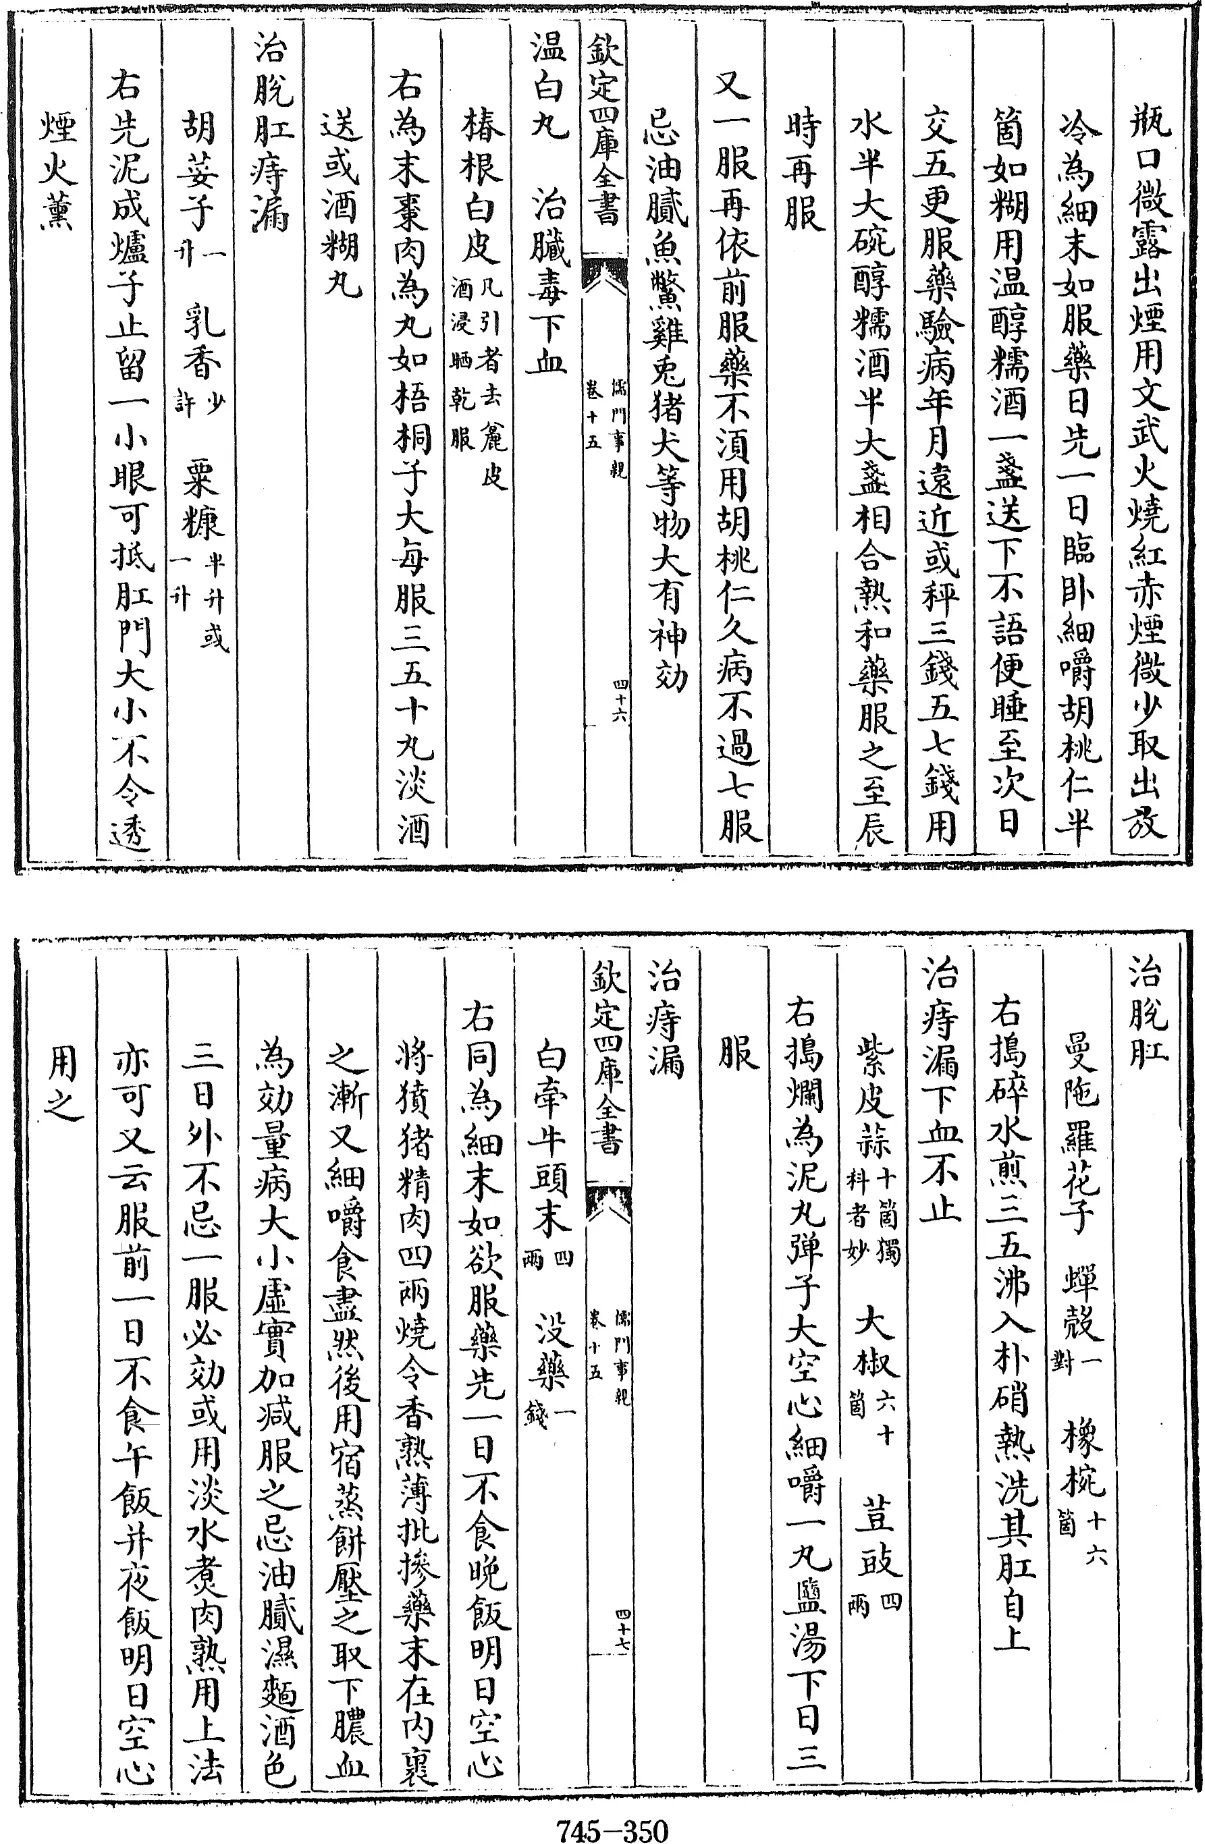 瓶口微露出煙用文武火燒紅赤煙微少取出放
冷為細末如服藥日先一日臨卧細嚼胡桃仁半
箇如糊用温醇糯酒一盞送下不語便睡至次日
交五更服藥驗病年月遠近或秤三錢五七錢用
水半大碗醇糯酒半大盞相合熱和藥服之至辰
時再服
又一服再依前服藥不湏用胡桃仁久病不過七服
忌油膩魚鱉雞兎猪犬等物大有神効
欽定四庫全書
儒門事親
卷十五
四十六
温白丸　治臟毒下血
椿根白皮凡引者去麄皮酒浸晒乾服
右為末棗肉為丸如梧桐子大每服三五十丸淡酒
送或酒糊丸
治脫肛痔漏
胡荽子一升　乳香少許　粟糠半升或一升
右先泥成爐子止留一小眼可抵肛門大小不令透
煙火薰
治脫肛
曼陁羅花子　蟬殼一對　橡椀十六箇
右搗碎水煎三五沸入朴硝熱洗其肛自上
治痔漏下血不止
紫皮蒜十箇獨科者妙　大椒六十箇　荳豉四兩
右搗爛為泥丸弹子大空心細嚼一丸鹽湯下日三
服
治痔漏
欽定四庫全書
儒門事親
卷十五
四十七
白牽牛頭末四兩　没藥一錢
右同為細末如欲服藥先一日不食晚飯明日空心
將獖猪精肉四兩燒令香熟薄批摻藥末在内裹
之漸又細嚼食盡然後用宿蒸餅壓之取下膿血
為効量病大小虛實加減服之忌油膩濕麵酒色
三日外不忌一服必効或用淡水煮肉熟用上法
亦可又云服前一日不食午飯并夜飯明日空心
用之
745-350